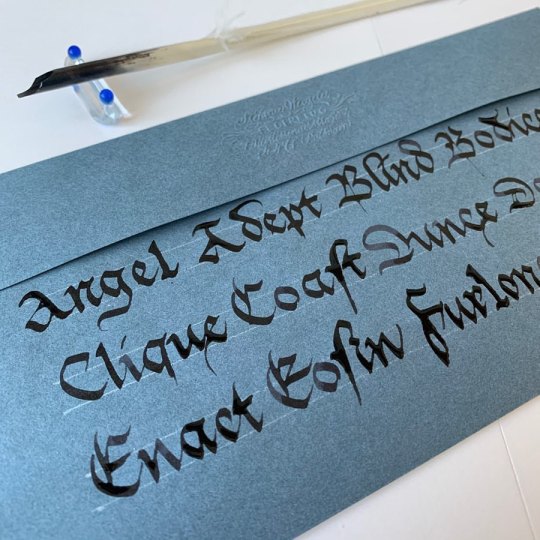 Angel Adept Blind Bodice
Clique Coaſt Dunce Do
Enact Eoſin Furlon